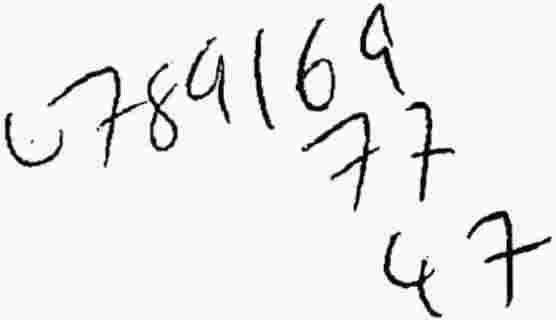 0789169
77
47